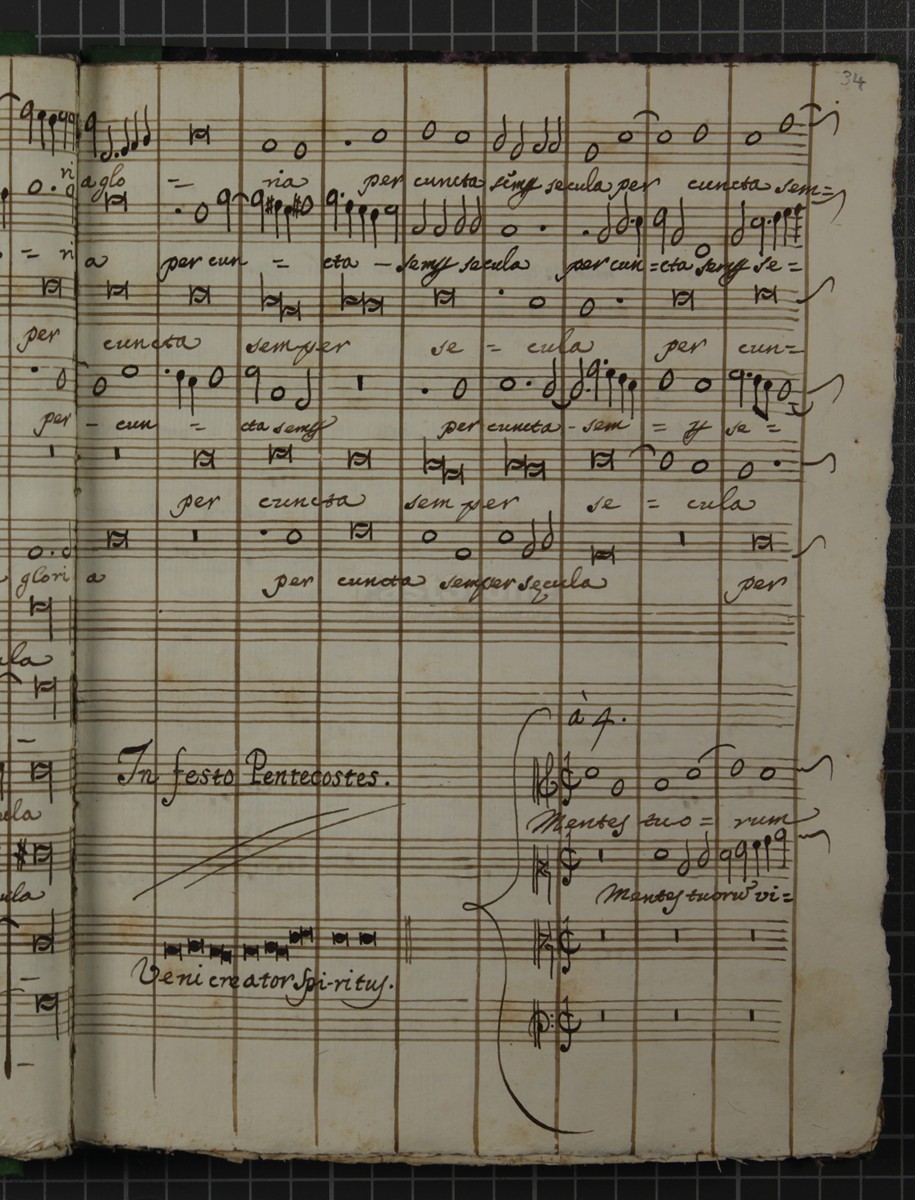 34
ri a glo = ria per cuncta semp secula per cuncta sem=
= ri a per cun = cta - semp secula per cun=cta semp se=
per cuncta semper se = cula per cun=
per - cun = cta semp per cuncta - sem = p se =
per cuncta semper se = cula
glori a per cuncta semper secula per
ula
à 4.
In festo Pentecostes.
ula Mentes tuo = rum
ula Mentes tuorũ vi=
Veni creator Spi-ritus.